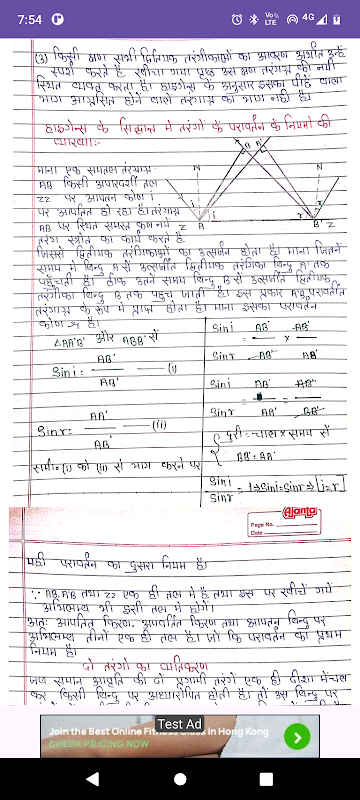 7:54
Vo)) LTE
4G
(3) किसी क्षण सभी द्वितियक तरंगीकाओं का आवरण अर्थात उन्हें
स्पर्श करते हुए खींचा गया पृष्ठ उस क्षण तरंगाग्र की नयी
स्थित व्यक्त करता है। हाइगेन्स के अनुसार इसका पीछे वाला
भाग अग्रसित होने वाले तरंगाग्र का भाग नही है।
हाइगेन्स के सिद्धान्त से तरंगों के परावर्तन के नियमों की
व्याख्या:-
माना एक समतल तरंगाग्र
AB किसी अपारदर्शी तल
ZZ' पर आपतन कोण i
पर आपतित हो रहा है। तरंगाग्र
AB पर स्थित समस्त कण नये
तरंग स्त्रोत का कार्य करते है
N
B
A'
N
i
i
r
r
Z
A
B'
Z'
जिससे द्वितीयक तरंगिकाओं का उत्सर्जन होता है। माना जितने
समय में बिन्दु A से उत्सर्जीत द्वितीयक तरंगिका बिन्दु A' तक
पहुँचती है। ठीक उतने समय बिन्दु B से उत्सर्जीत द्वितीयक
तरंगीका बिन्दु B' तक पहुच जाती है। इस प्रकार A'B' परावर्तीत
तरंगाग्र के रूप में प्राप्त होता है। माना इसका परावर्तन
कोण r है।
△AA'B' और ABB' से
Sin i = BB' / AB' — (i)
Sin r = AA' / AB' — (ii)
समी० (i) को (ii) से भाग करने पर
Sin i / Sin r = BB' / AB' × AB' / AA'
Sin i / Sin r = BB' / AA'
{ दुरी = चाल × समय से
BB' = AA'
Sin i / Sin r = 1 ⇒ Sin i = Sin r ⇒ i = r
Ajanta
Page No.
Date
यही परावर्तन का दुसरा नियम है।
∵ AB, A'B' तथा ZZ' एक ही तल में है तथा इस पर खींचे गये
अभिलम्ब भी इसी तल में होगें।
अतः आपतित किरण, अपवर्तित किरण तथा आपतन बिन्दु पर
अभिलम्ब तीनों एक ही तल है। जो कि परावर्तन का प्रथम
नियम है।
दो तरंगो का व्यतिकरण
जब समान आवृति की दो प्रगामी तरंगे एक ही दीशा में चल
कर किसी बिन्दु पर अध्यारोपित होती है। तो उस बिन्दु पर
Test Ad
Join the Best Online Fitness Class in Hong Kong
CHECK PRICING NOW